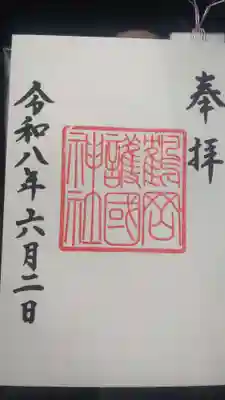 奉拝
鶴岡
護國
神社
令和八年六月二日